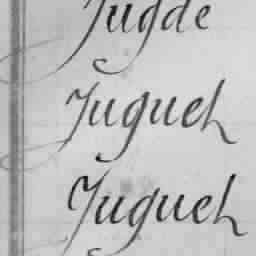 Jugde
Juguel
Juguel